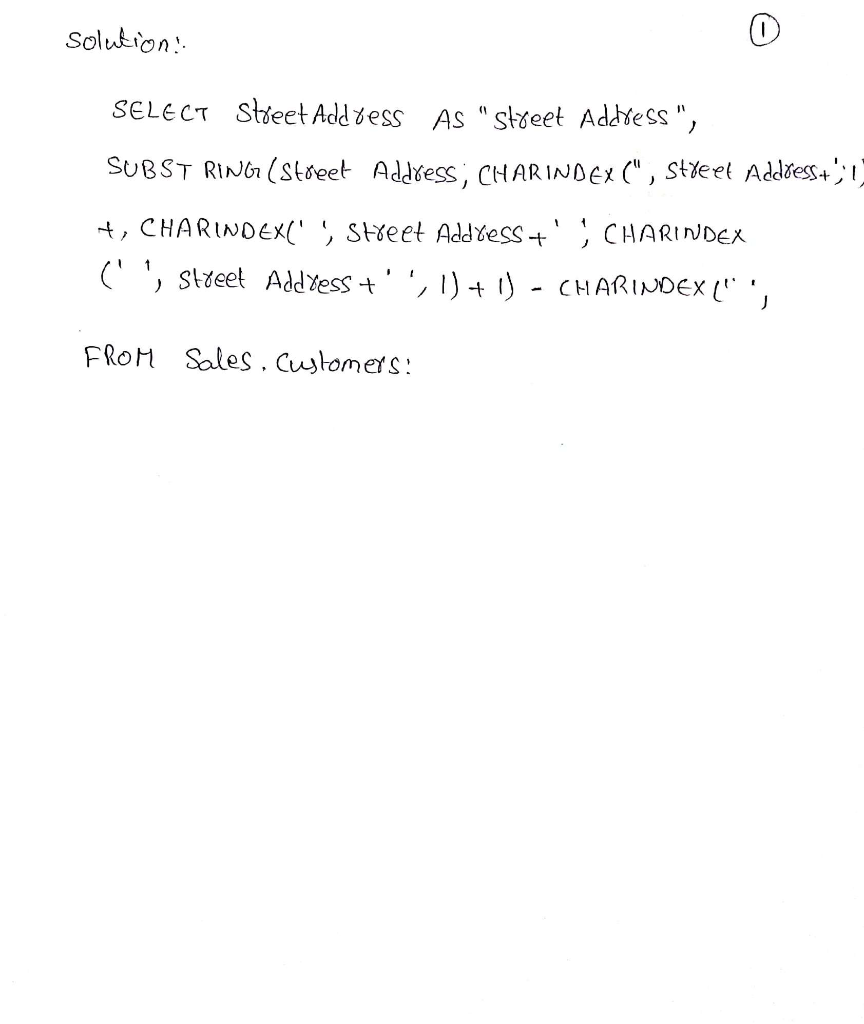 ①
Solution:
SELECT StreetAddress AS "Street Address",
SUBSTRING(Street Address, CHARINDEX(", Street Address+';1)
+, CHARINDEX(' ', Street Address+' ', CHARINDEX
(' ', Street Address+' ', 1)+1) - CHARINDEX(" ',
FROM Sales.Customers: